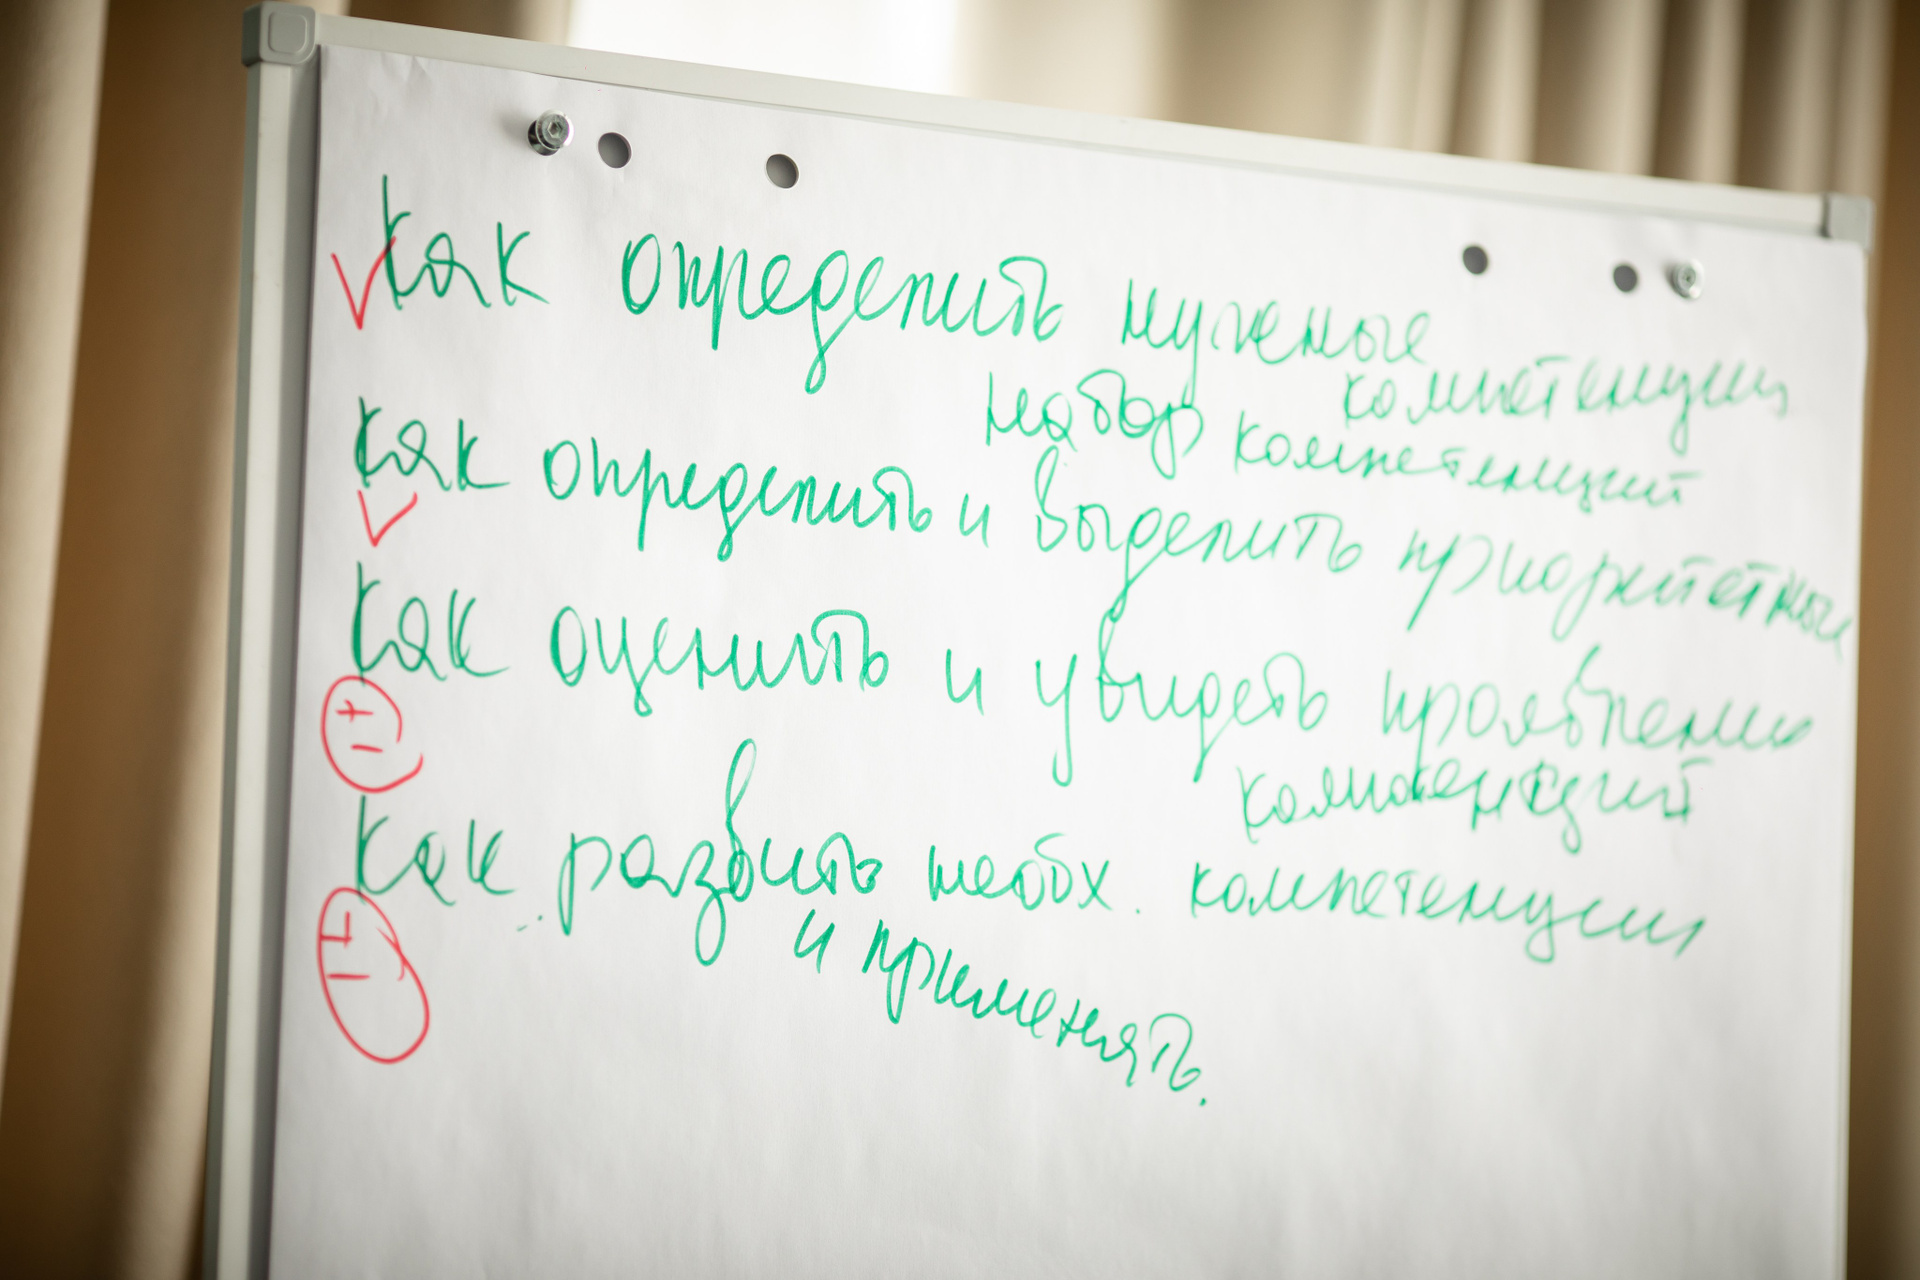 Как определить нужные
компетенции
набор компетенций
Как определить и выделить приоритетные
Как оценить и увидеть проявлению
компетенций
Как развить необх. компетенции
и применять.